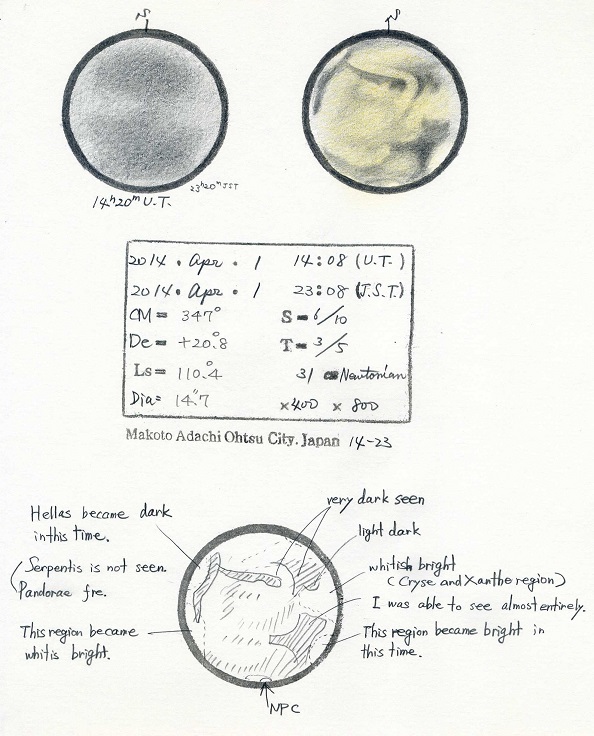 S
S
14h20m U.T.
23h20m JST
2014 . Apr . 1 14:08 (U.T.)
2014 . Apr . 1 23:08 (J.S.T)
CM= 347° S=6/10
De= +20°.8 T=3/5
Ls= 110°.4 31 cm Newtonian
Dia= 14".7 ×400 × 800
Makoto Adachi Ohtsu City. Japan 14-23
very dark seen
Hellas became dark
in this time.
light dark
(Serpentis is not seen.
Pandorae fre.
whitish bright
(Cryse and Xanthe region)
I was able to see almost entirely.
This region became
whitis bright.
This region became bright in
this time.
NPC